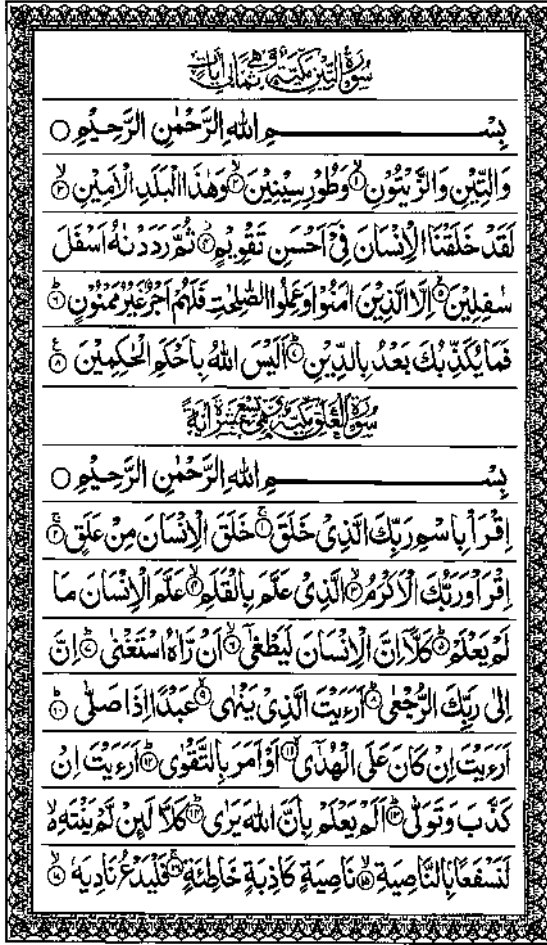 سُوْرَةُ التِّيْنِ مَكِّيَّةٌ وَّهِيَ ثَمَانِيْ اٰيَاتٍ
بِسْمِ اللّٰهِ الرَّحْمٰنِ الرَّحِيْمِ ○
وَالتِّيْنِ وَالزَّيْتُوْنِ ۙ۱ وَطُوْرِ سِيْنِيْنَ ۙ۲ وَهٰذَا الْبَلَدِ الْاَمِيْنِ ۙ۳
لَقَدْ خَلَقْنَا الْاِنْسَانَ فِيْٓ اَحْسَنِ تَقْوِيْمٍ ۴ ثُمَّ رَدَدْنٰهُ اَسْفَلَ
سٰفِلِيْنَ ۵ اِلَّا الَّذِيْنَ اٰمَنُوْا وَعَمِلُوا الصّٰلِحٰتِ فَلَهُمْ اَجْرٌ غَيْرُ مَمْنُوْنٍ ؕ۶
فَمَا يُكَذِّبُكَ بَعْدُ بِالدِّيْنِ ؕ۷ اَلَيْسَ اللّٰهُ بِاَحْكَمِ الْحٰكِمِيْنَ ۸
سُوْرَةُ الْعَلَقِ مَكِّيَّةٌ وَّهِيَ تِسْعَ عَشْرَةَ اٰيَةً
بِسْمِ اللّٰهِ الرَّحْمٰنِ الرَّحِيْمِ ○
اِقْرَاْ بِاسْمِ رَبِّكَ الَّذِيْ خَلَقَ ۚ۱ خَلَقَ الْاِنْسَانَ مِنْ عَلَقٍ ۚ۲
اِقْرَاْ وَرَبُّكَ الْاَكْرَمُ ۙ۳ الَّذِيْ عَلَّمَ بِالْقَلَمِ ۙ۴ عَلَّمَ الْاِنْسَانَ مَا
لَمْ يَعْلَمْ ؕ۵ كَلَّآ اِنَّ الْاِنْسَانَ لَيَطْغٰٓى ۙ۶ اَنْ رَّاٰهُ اسْتَغْنٰى ؕ۷ اِنَّ
اِلٰى رَبِّكَ الرُّجْعٰى ؕ۸ اَرَءَيْتَ الَّذِيْ يَنْهٰى ۙ۹ عَبْدًا اِذَا صَلّٰى ؕ۱۰
اَرَءَيْتَ اِنْ كَانَ عَلَى الْهُدٰٓى ۙ۱۱ اَوْ اَمَرَ بِالتَّقْوٰى ؕ۱۲ اَرَءَيْتَ اِنْ
كَذَّبَ وَتَوَلّٰى ؕ۱۳ اَلَمْ يَعْلَمْ بِاَنَّ اللّٰهَ يَرٰى ؕ۱۴ كَلَّا لَئِنْ لَّمْ يَنْتَهِ ۙ
لَنَسْفَعًا بِالنَّاصِيَةِ ۙ۱۵ نَاصِيَةٍ كَاذِبَةٍ خَاطِئَةٍ ۚ۱۶ فَلْيَدْعُ نَادِيَهٗ ۙ۱۷